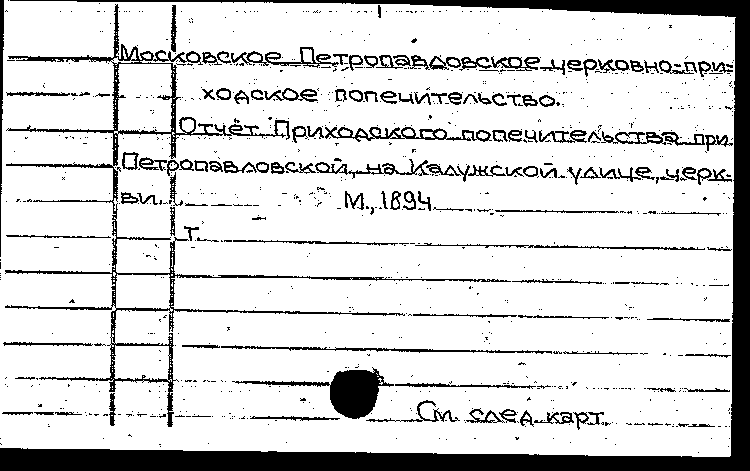 Московское Петропавловское церковно-при-
ходское попечительство.
Отчёт Приходского попечительства при
Петропавловской, на Калужской улице, церк-
ви.. М., 1894
т.
См. след. карт.